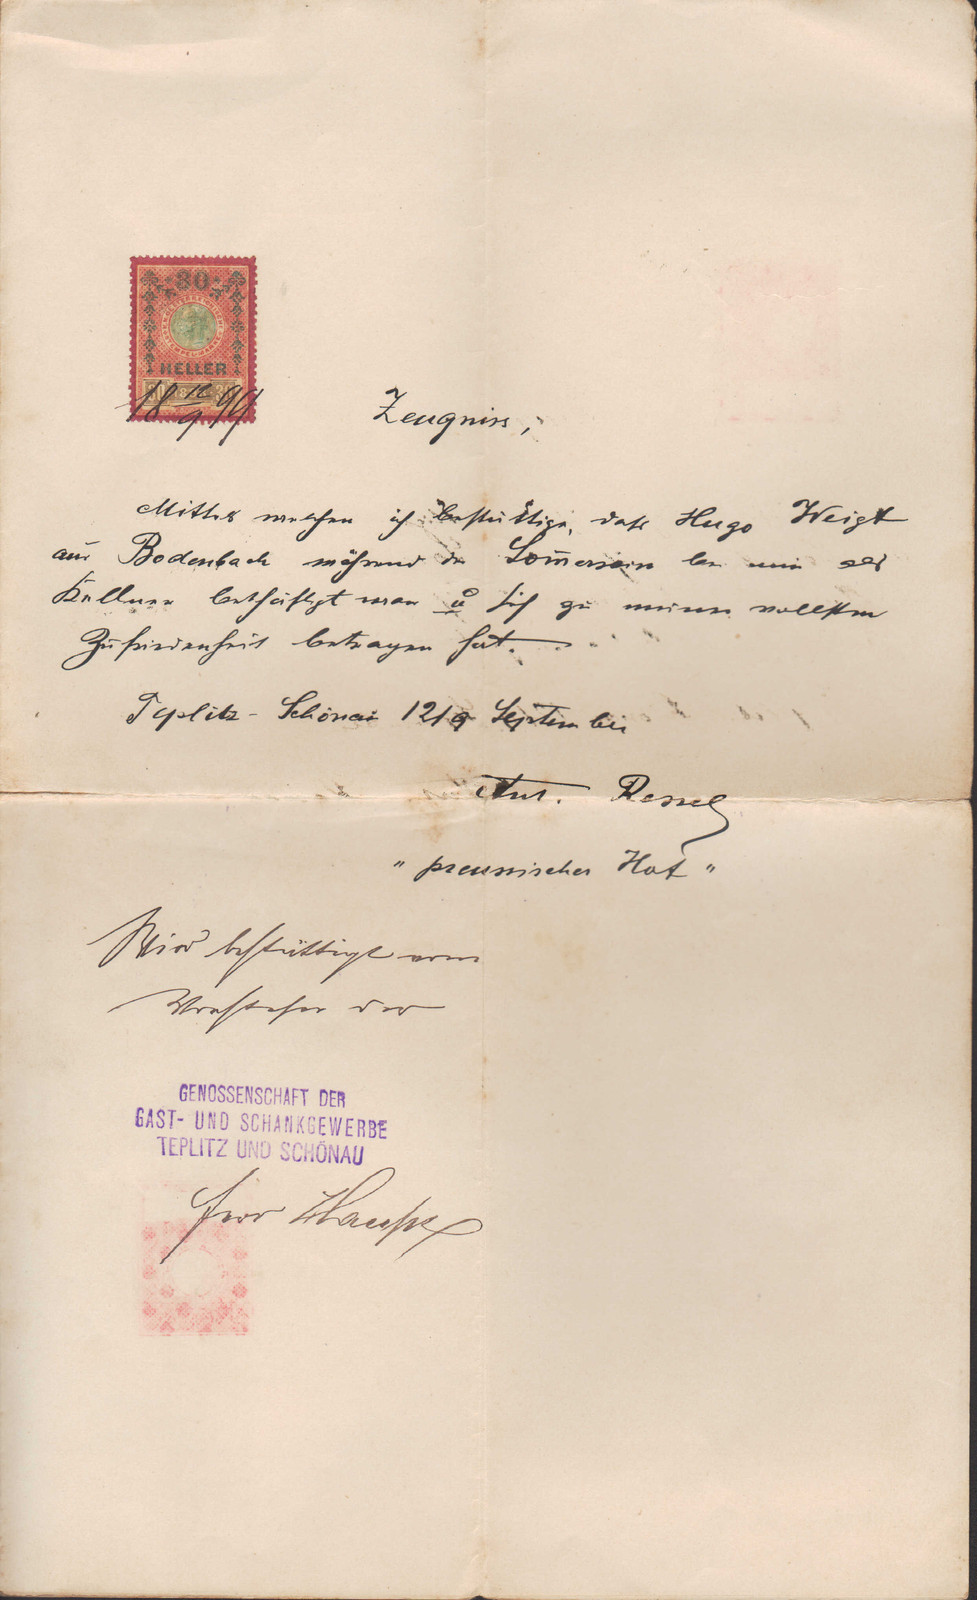 30
HELLER
18 12/9 99
Zeugniss,
Mittels welchen ich bestättige, daß Hugo Weigt
aus Bodenbach während der Sommersaison bei mir als
Kellner beschäftigt war u sich zu meiner vollsten
Zufriedenheit betragen hat.
Teplitz - Schönau 12/9 September
Ant. Ressel
"preussischer Hof"
Wird bestättigt vom
Vorsteher der
GENOSSENSCHAFT DER
GAST- UND SCHANKGEWERBE
TEPLITZ UND SCHÖNAU